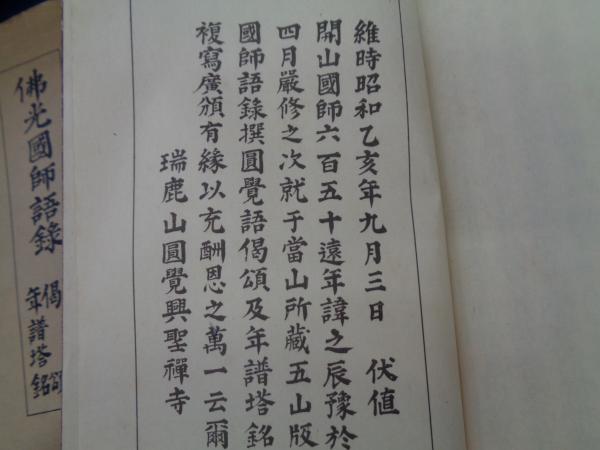 維時昭和乙亥年九月三日　伏値
開山國師六百五十遠年諱之辰豫於
四月嚴修之次就于當山所藏五山版
國師語錄撰圓覺語偈頌及年譜塔銘
複寫廣頒有緣以充酬恩之萬一云爾
瑞鹿山圓覺興聖禪寺
佛光國師語錄
偈頌
年譜塔銘